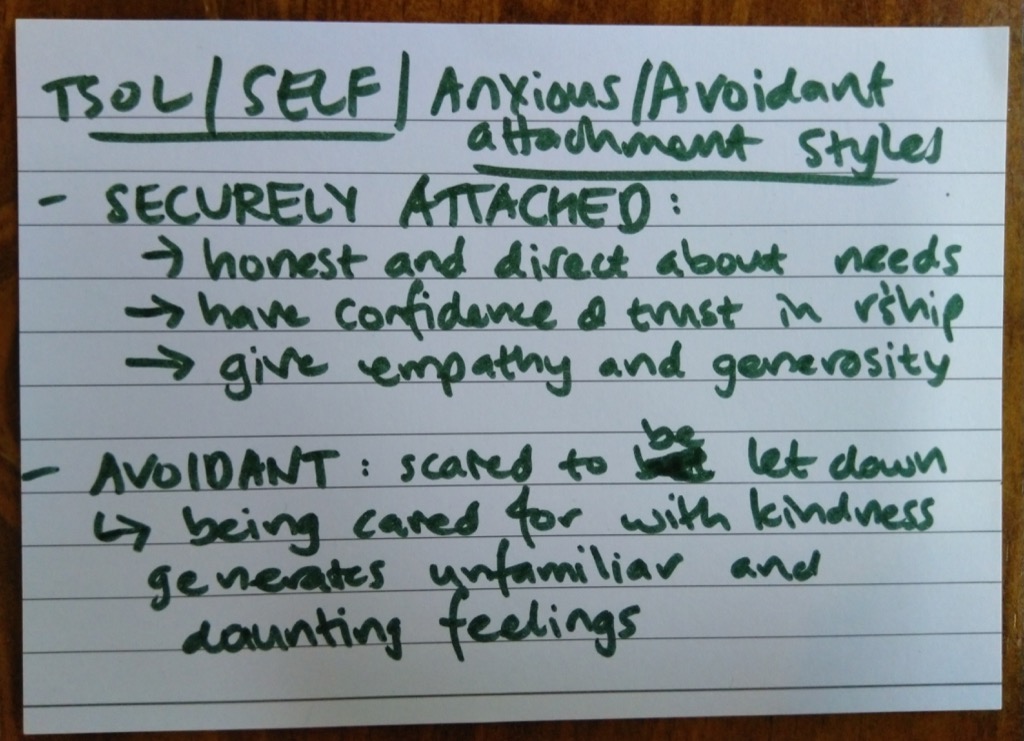 TSOL / SELF / Anxious/Avoidant
attachment styles
- SECURELY ATTACHED:
→ honest and direct about needs
→ have confidence & trust in r'ship
→ give empathy and generosity
- AVOIDANT: scared to be let down
↳ being cared for with kindness
generates unfamiliar and
daunting feelings